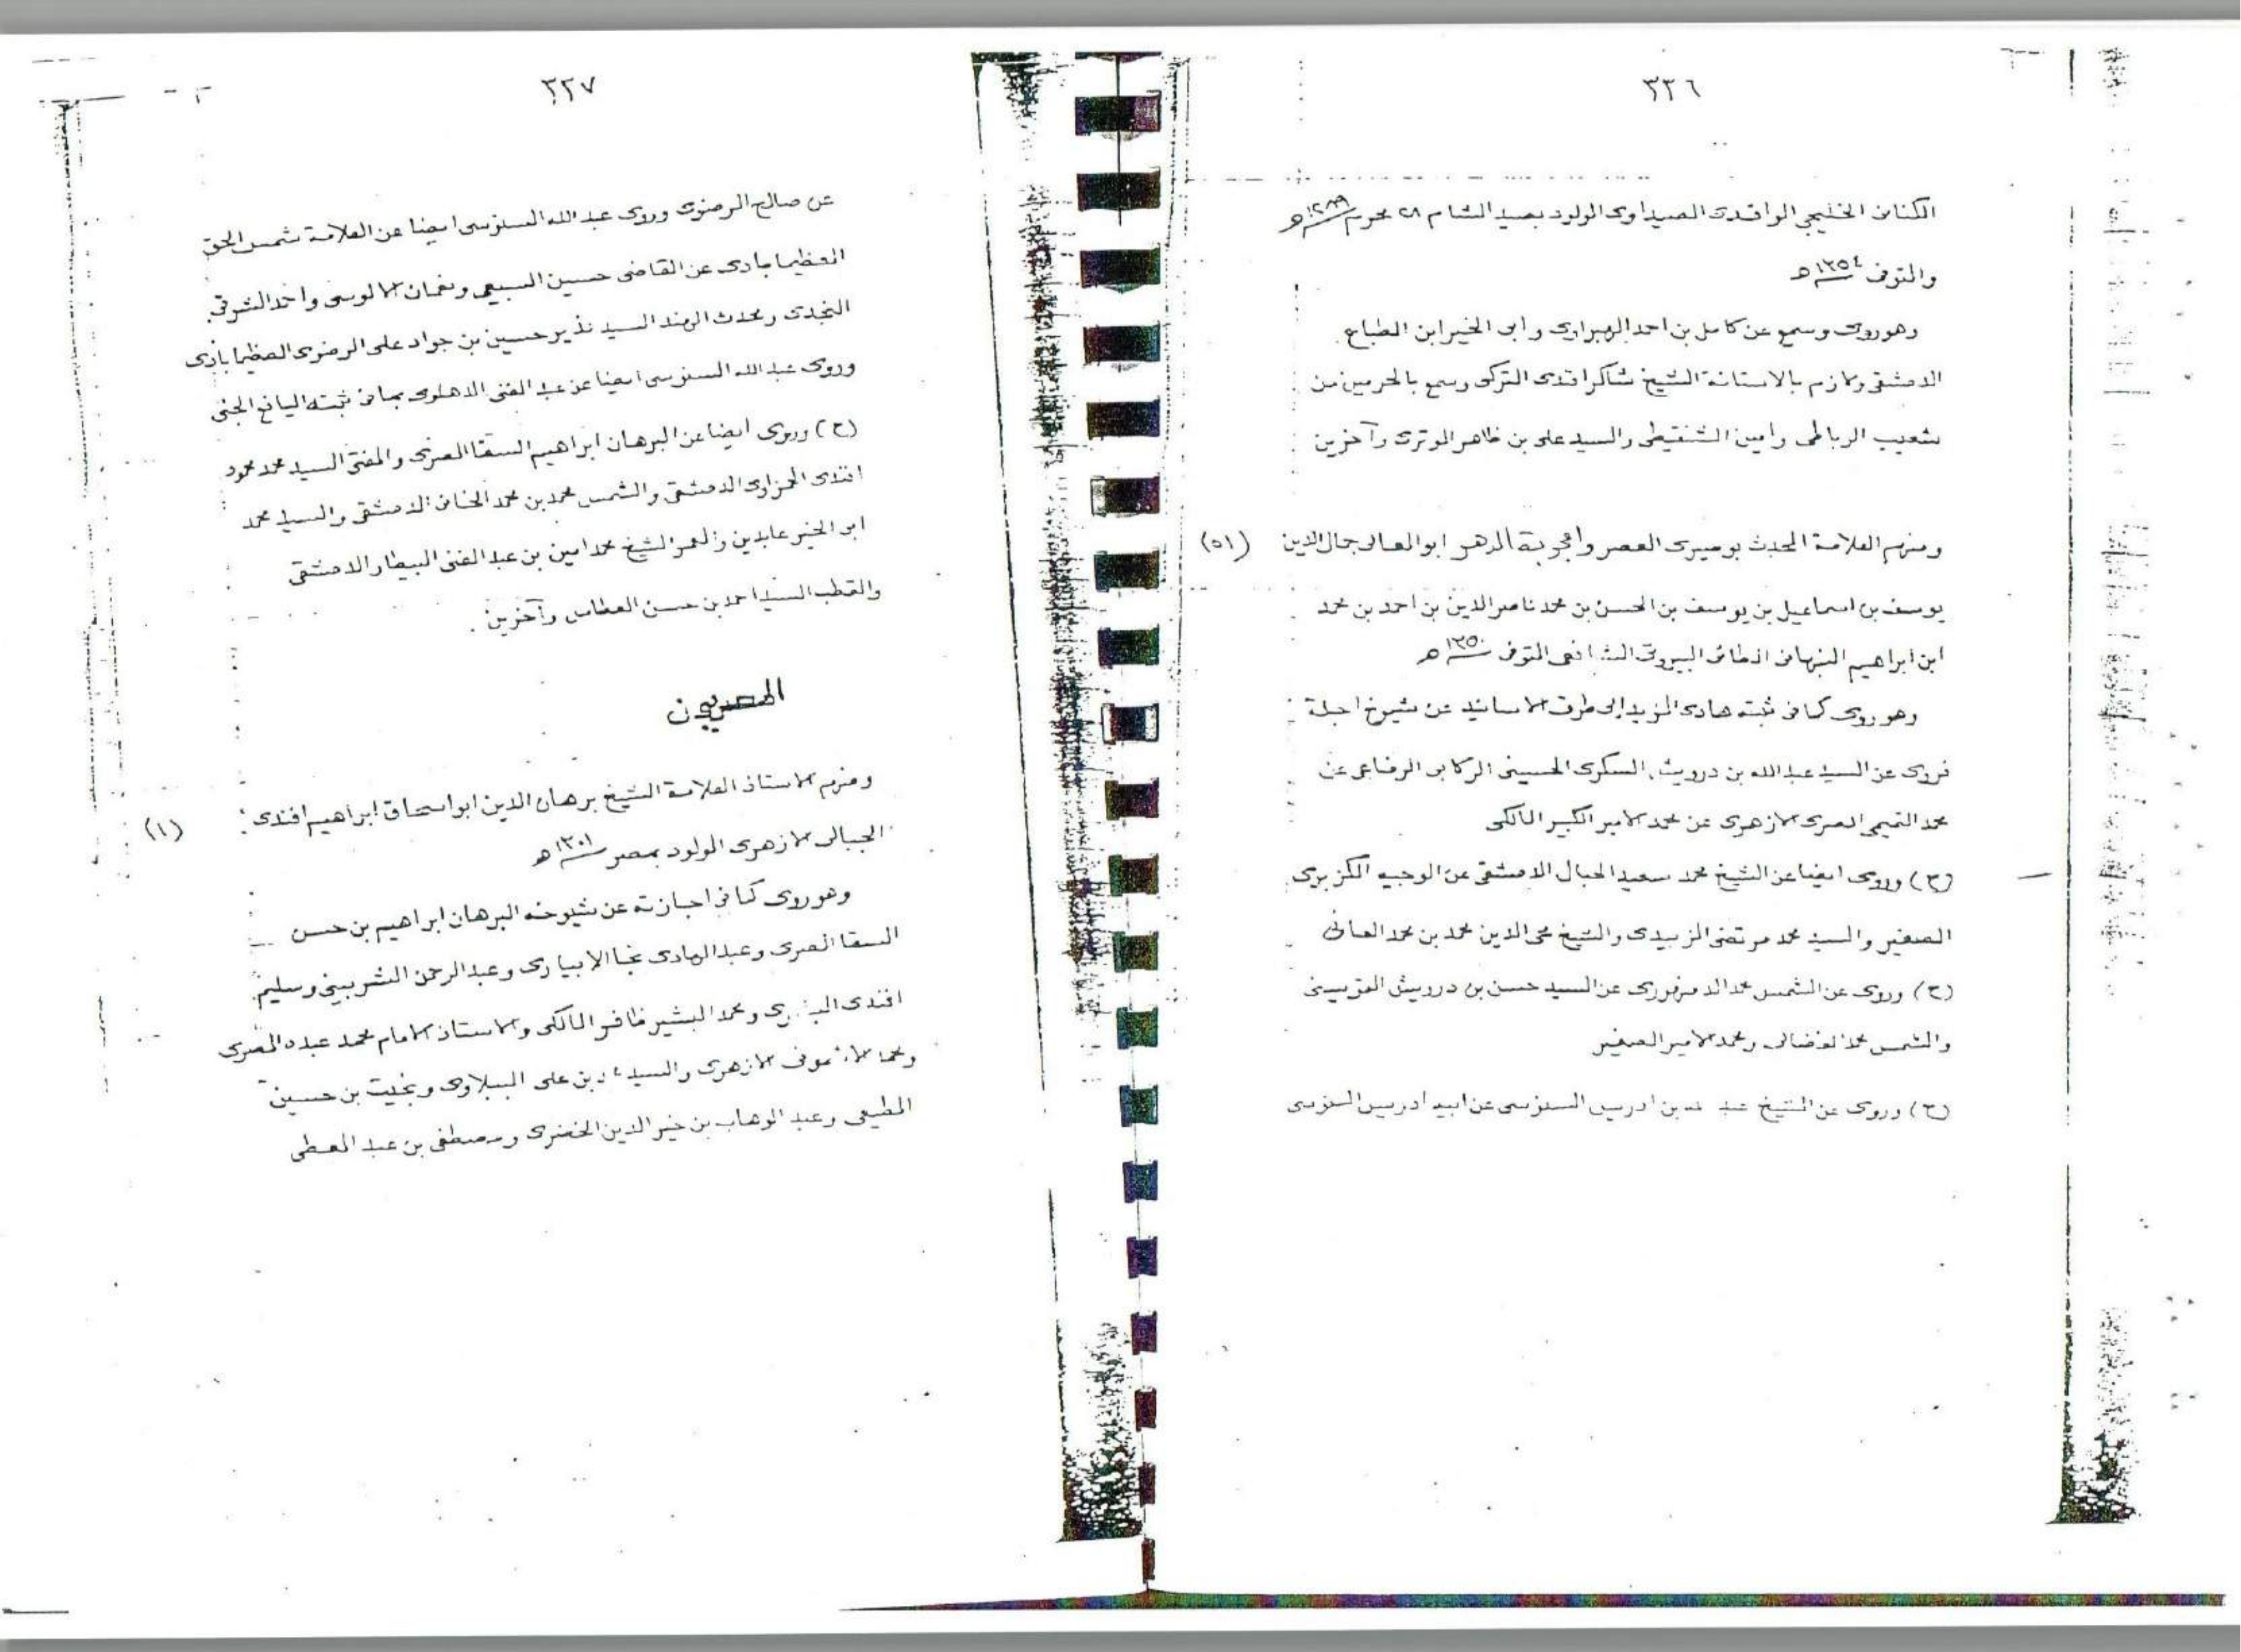 ٣٣٦
الكنانى الخليجى الواقدى الصيداوى المولود بصيدا الشام ٢٨ محرم ١٢٨٩ هـ
والمتوفى ١٣٥٤ هـ
وهو روى وسمع عن كامل بن احمد الهبراوى وابى الخير ابن الطباع
الدمشقى ولازم بالاستانة الشيخ شاكر افندى التركى وسمع بالحرمين من
شعيب الرباطى وامين الشنقيطى والسيد على بن ظاهر الوترى وآخرين
ومنهم العلامة المحدث بوصيرى العصر واعجوبة الدهر ابو المعالى جمال الدين (٥١)
يوسف بن اسماعيل بن يوسف بن الحسن بن محمد ناصر الدين بن احمد بن محمد
ابن ابراهيم النبهانى البيروتى الشافعى المتوفى ١٣٥٠ هـ
وهو روى كما فى ثبته هادى المريد إلى طرق الاسانيد عن شيوخ اجلة
فروى عن السيد عبد الله بن درويش السكرى الحسينى الركابى الرفاعى عن
محمد التميمى المصرى الازهرى عن محمد الامير الكبير المالكى
(ح) وروى ايضا عن الشيخ محمد سعيد الحبال الدمشقى عن الوجيه الكزبرى
الصغير والسيد محمد مرتضى الزبيدى والشيخ محى الدين محمد بن محمد العانى
(ح) وروى عن الشمس محمد الدمنهورى عن السيد حسن بن درويش القويسنى
والشمس محمد الفضالى ومحمد الامير الصغير
(ح) وروى عن الشيخ عبد الله بن ادريس السنوسى عن ابيه ادريس السنوسى
٣٣٧
عن صالح الرضوى وروى عبد الله السنوسى ايضا عن العلامة شمس الحق
العظيمابادى عن القاضى حسين السبيعى ونعمان الالوسى واحمد الشرقى
النجدى ومحدث الهند السيد نذير حسين بن جواد على الرضوى العظيمابادى
وروى عبد الله السنوسى ايضا عن عبد الغنى الدهلوى بما فى ثبته اليانع الجنى
(ح) وروى ايضا عن البرهان ابراهيم السقا المصرى والمفتى السيد محمد محمود
افندى الحمزاوى الدمشقى والشمس محمد بن محمد الخانى الدمشقى والسيد محمد
ابو الخير عابدين والمعمر الشيخ محمد امين بن عبد الغنى البيطار الدمشقى
والقطب السيد احمد بن حسن العطاس وآخرين .
المصريون
ومنهم الاستاذ العلامة الشيخ برهان الدين ابو اسحاق ابراهيم افندى (١)
الجبالى الازهرى المولود بمصر ١٣٠١ هـ
وهو روى كما فى اجازته عن شيوخه البرهان ابراهيم بن حسن
السقا المصرى وعبد الهادى نجا الابيارى وعبد الرحمن الشربينى وسليم
افندى البشرى ومحمد البشير ظافر المالكى والاستاذ الامام محمد عبده المصرى
ومحمد الاشمونى الازهرى والسيد بن على الببلاوى وبخيت بن حسين
المطيعى وعبد الوهاب بن خير الدين الخضرى ومصطفى بن عبد المعطى